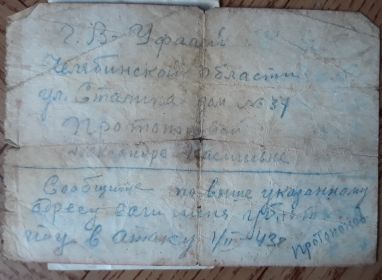 г. В-Уфалей
Челябинской области
ул. Сталина дом № 37
Протопоповой
Александре Васильевне
Сообщите по выше указанному
адресу если меня убьют
иду в атаку 1/II 43 г
Протопопов